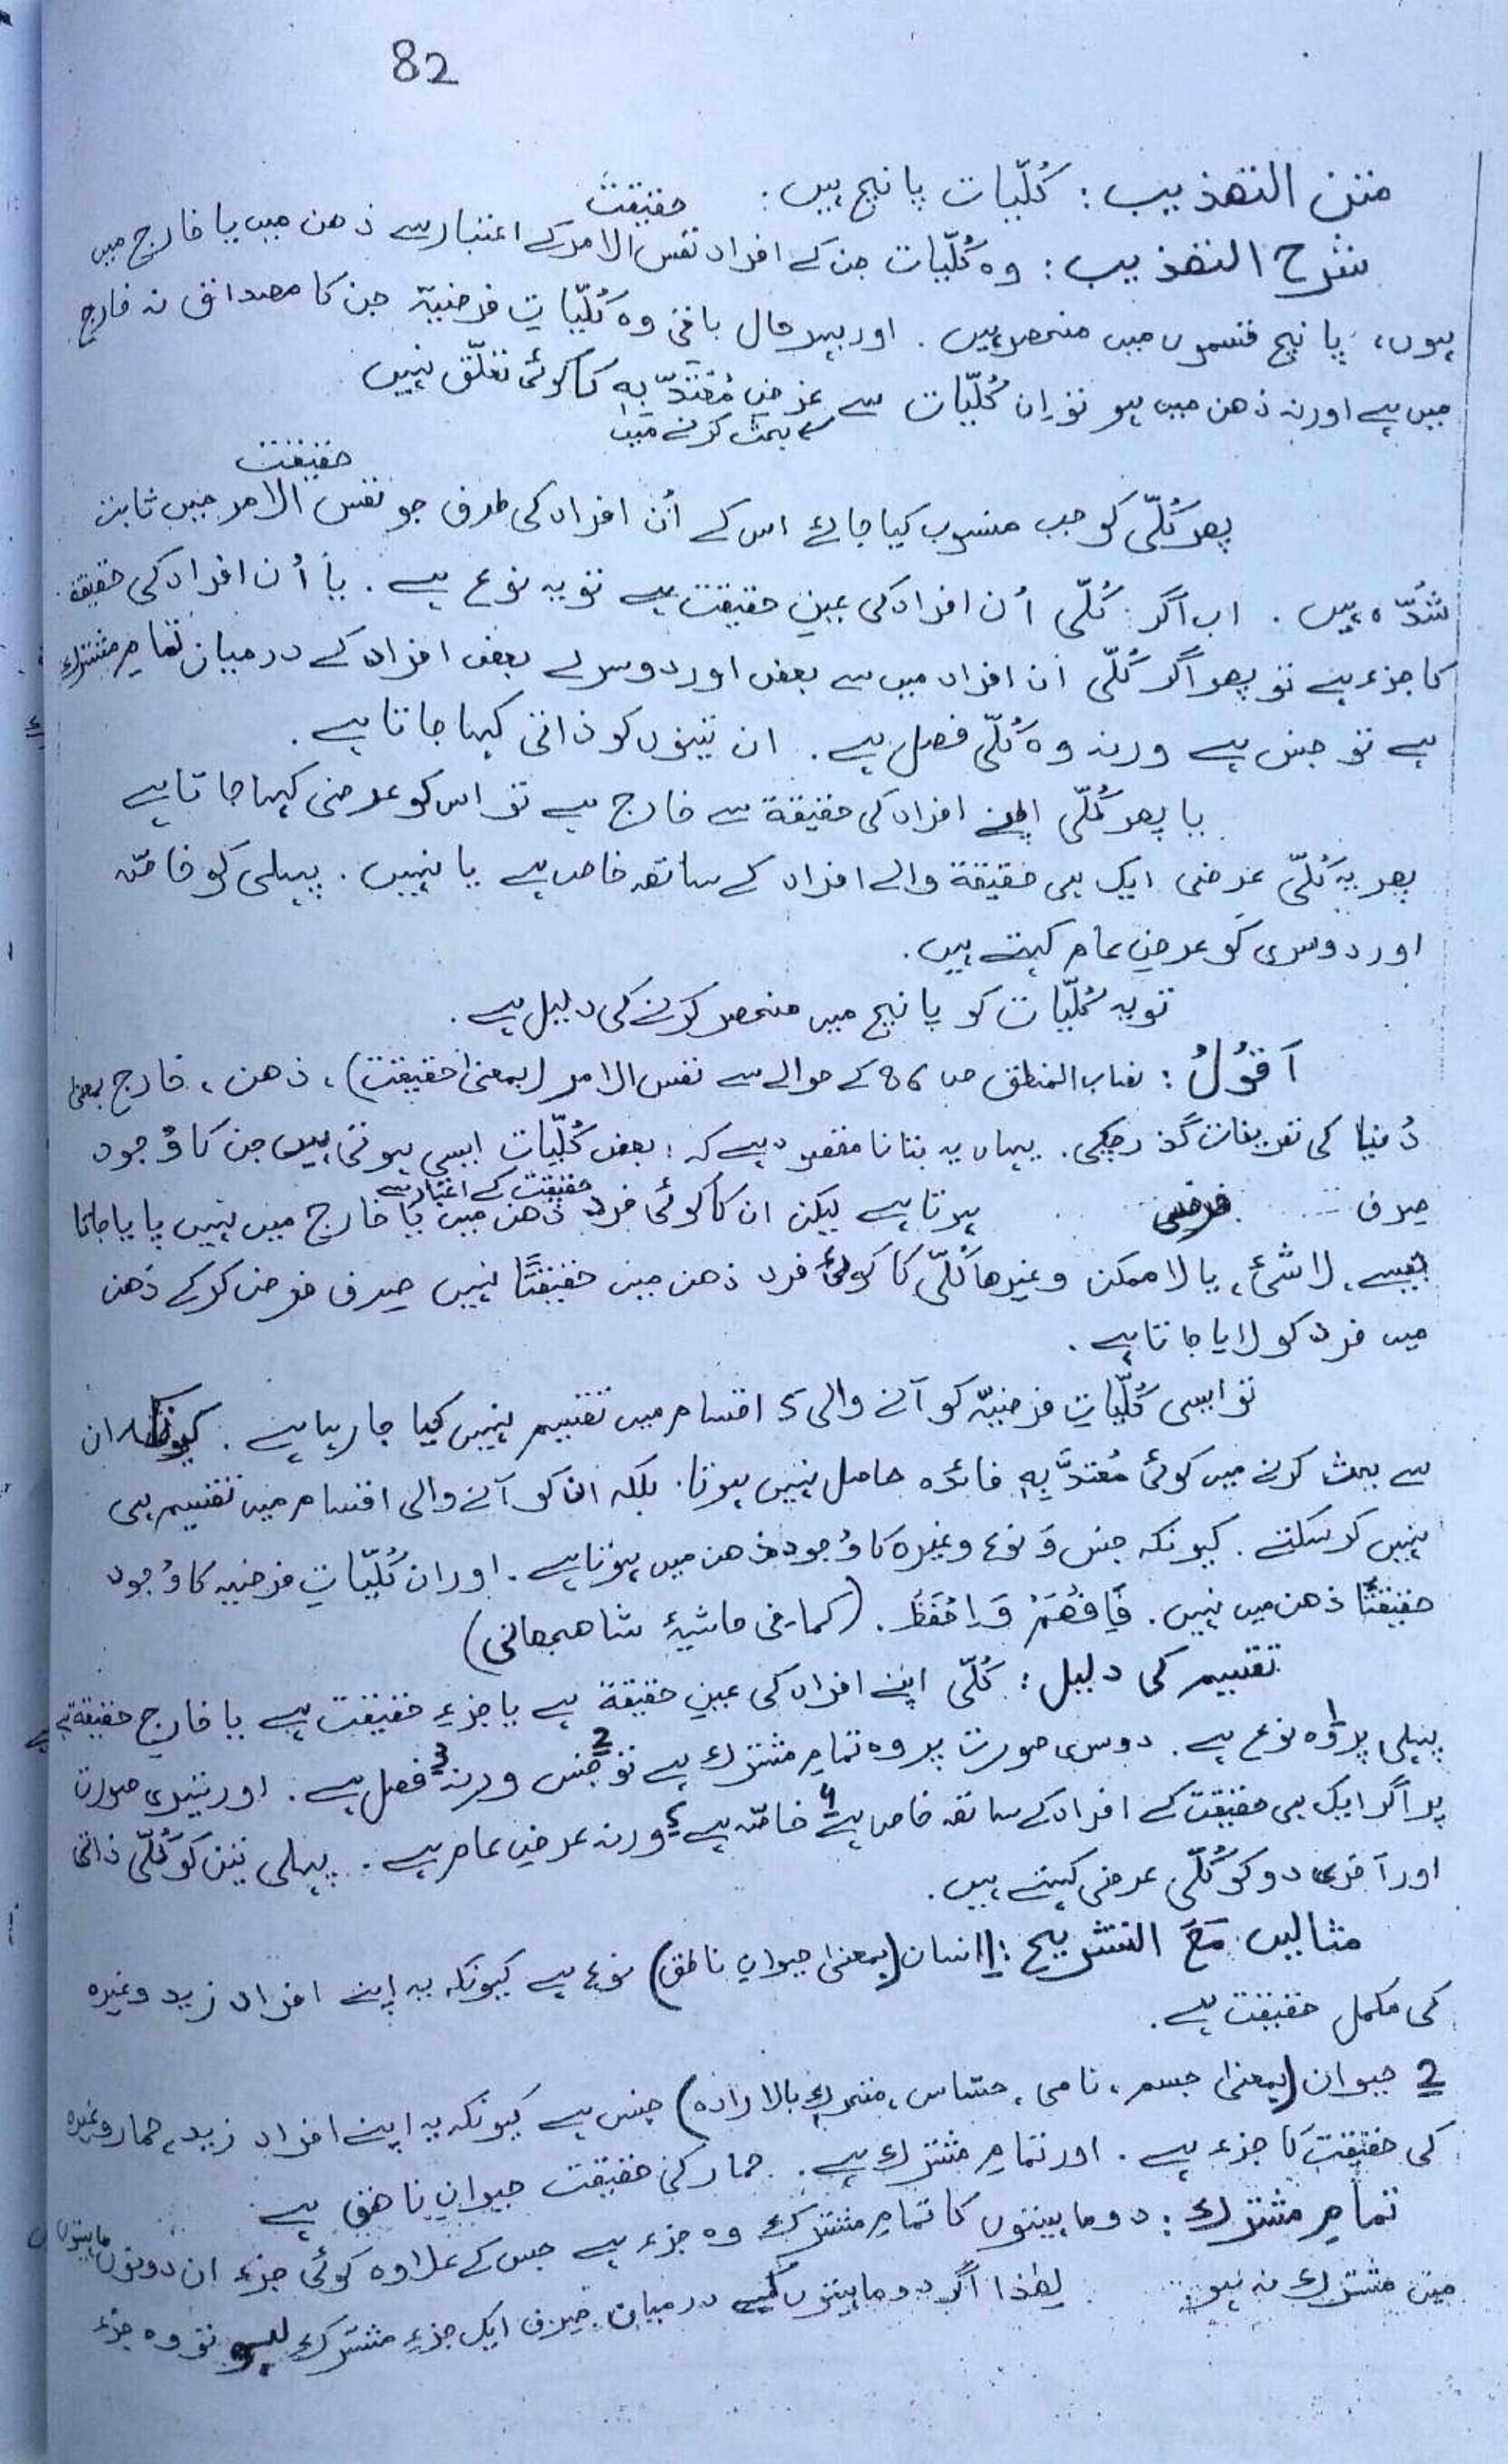 82
متن التھذیب : کُلّیات پانچ ہیں.
حقیقت
شرح التھذیب : وہ کُلّیات جن کے افراد نفس الامر کے اعتبار سے ذھن میں یا خارج میں
ہوں، پانچ قسموں میں منحصر ہیں. اور بہرحال باقی وہ کُلّیاتِ فرضیّہ جن کا مصداق نہ خارج
میں ہے اور نہ ذھن میں ہو تو اِن کُلّیات سے غرضِ مُعْتَدّ بِہٖ کا کوئی تعلّق نہیں
سے بحث کرنے میں
حقیقت
پھر کُلّی کو جب منسوب کیا جائے اس کے اُن افراد کی طرف جو نفس الامر میں ثابت
شُدّہ ہیں. اب اگر کُلّی اُن افراد کی عینِ حقیقت ہے تو یہ نوع ہے. یا اُن افراد کی حقیقۃ
کا جزء ہے تو پھر اگر کُلّی ان افراد میں سے بعض اور دوسرے بعض افراد کے درمیان تمامِ مشترك
ہے تو جنس ہے ورنہ وہ کُلّی فصل ہے. ان تینوں کو ذاتی کہا جاتا ہے.
یا پھر کُلّی اپنے افراد کی حقیقۃ سے خارج ہے تو اس کو عرضی کہا جاتا ہے
پھر یہ کُلّی عرضی ایک ہی حقیقۃ والے افراد کے ساتھ خاص ہے یا نہیں. پہلی کو خاصّہ
اور دوسری کو عرضِ عام کہتے ہیں.
تو یہ کُلّیات کو پانچ میں منحصر کرنے کی دلیل ہے.
اَقُوْلُ : نصاب المنطق ص 86 کے حوالے سے نفس الامر (بمعنیٰ حقیقت)، ذھن، خارج بمعنیٰ
دُنیا کی تعریفات گذر چکی. یہاں یہ بتانا مقصود ہے کہ : بعض کُلّیات ایسی ہوتی ہیں جن کا وُجود
حقیقت کے اعتبار سے
صرف فرضی ہوتا ہے لیکن ان کا کوئی فرد ذھن میں یا خارج میں نہیں پایا جاتا
جیسے، لا شئ، یا لا ممکن وغیرھا کُلّی کا کوئی فرد ذھن میں حقیقتًا نہیں صرف فرض کرکے ذھن
میں فرد کو لایا جاتا ہے.
تو ایسی کُلّیاتِ فرضیّہ کو آنے والی 5 اقسام میں تقسیم نہیں کیا جا رہا ہے. کیونکہ ان
سے بحث کرنے میں کوئی مُعتدَّ بِہٖ فائدہ حاصل نہیں ہوتا. بلکہ ان کو آنے والی اقسام میں تقسیم ہی
نہیں کر سکتے. کیونکہ جنس وَ نوع وغیرہ کا وُجود ذھن میں ہوتا ہے. اور ان کُلّیاتِ فرضیہ کا وُجود
حقیقتًا ذھن میں نہیں. فَافْھَمْ وَاحْفَظْ. (کما فی حاشیۂ شاھجھانی)
تقسیم کی دلیل : کُلّی اپنے افراد کی عینِ حقیقۃ ہے یا جزءِ حقیقت ہے یا خارجِ حقیقۃ ہے
پہلی پر 1 وہ نوع ہے. دوسری صورت پر وہ تمامِ مشترك ہے تو 2 جنس ورنہ 3 فصل ہے. اور تیسری صورت
پر اگر ایک ہی حقیقت کے افراد کے ساتھ خاص ہے 4 خاصّہ ہے 5 ورنہ عرضِ عام ہے. پہلی تین کو کُلّی ذاتی
اور آخری دو کو کُلّی عرضی کہتے ہیں.
مثالیں مَعَ التشریح : 1 انسان (بمعنیٰ حیوانِ ناطق) نوع ہے کیونکہ یہ اپنے افراد زید وغیرہ
کی مکمل حقیقت ہے.
2 حیوان (بمعنیٰ جسم، نامی، حسّاس، متحرك بالارادہ) جنس ہے کیونکہ یہ اپنے افراد زید، حمار وغیرہ
کی حقیقت کا جزء ہے. اور تمامِ مشترك ہے. حمار کی حقیقت حیوانِ ناھق ہے.
تمامِ مشترك : دو ماہیتوں کا تمامِ مشترك وہ جزء ہے جس کے علاوہ کوئی جزء ان دونوں ماہیتوں
میں مشترك نہ ہو لھٰذا اگر دو ماہیتوں کے درمیان صرف ایک جزءِ مشترك ہو تو وہ جزء